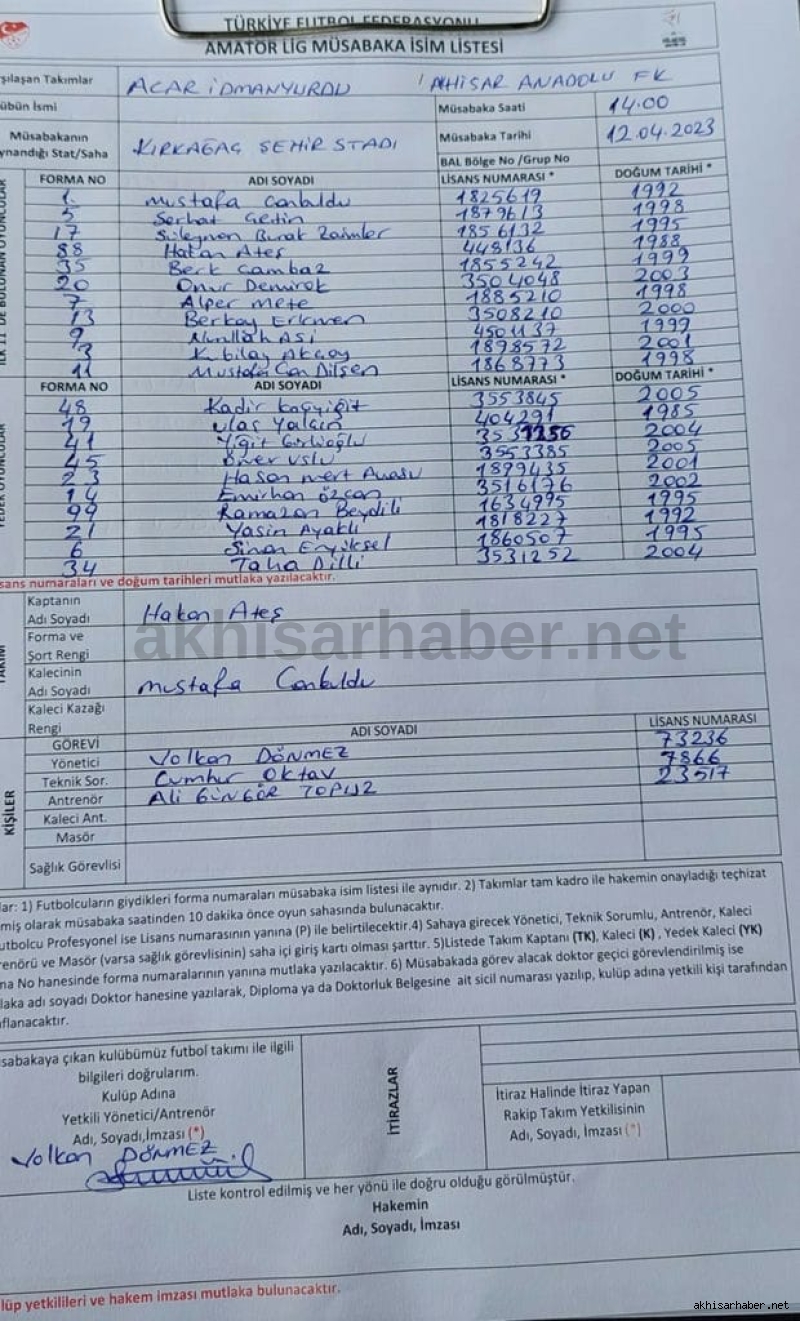 TÜRKİYE FUTBOL FEDERASYONU
AMATÖR LİG MÜSABAKA İSİM LİSTESİ
şılaşan Takımlar ACAR İDMANYURDU / AKHİSAR ANADOLU FK
übün İsmi Müsabaka Saati 14.00
Müsabakanın
ynandığı Stat/Saha KIRKAĞAÇ ŞEHİR STADI Müsabaka Tarihi 12.04.2023
BAL Bölge No /Grup No
FORMA NO ADI SOYADI LİSANS NUMARASI * DOĞUM TARİHİ *
1 Mustafa Canbuldu 1825619 1992
5 Serhat Çetin 1879613 1998
17 Süleyman Burak Zaimler 1856132 1995
88 Hakan Ateş 448136 1988
35 Berk Cambaz 1855242 1999
20 Onur Demirok 3504048 2003
7 Alper Mete 1885210 1998
13 Berkay Erkmen 3508210 2000
9 Nurullah Asi 4501137 1999
3 Kubilay Akçay 1898572 2001
11 Mustafa Can Dilşen 1868773 1998
FORMA NO ADI SOYADI LİSANS NUMARASI * DOĞUM TARİHİ *
48 Kadir Koçyiğit 3553845 2005
19 Ulaş Yalçın 404291 1985
41 Yiğit 2004
45 Ömer Uslu 3553385 2005
23 Hasan Mert 1899435 2001
14 Emirhan Özcan 3516176 2002
99 Ramazan Beydili 1634995 1995
21 Yasin Ayaklı 1818227 1992
6 Sinan Eryüksel 1860507 1995
34 Taha Dilli 3531252 2004
sans numaraları ve doğum tarihleri mutlaka yazılacaktır.
Kaptanın
Adı Soyadı Hakan Ateş
Forma ve
Şort Rengi
Kalecinin
Adı Soyadı Mustafa Canbuldu
Kaleci Kazağı
Rengi
GÖREVİ ADI SOYADI LİSANS NUMARASI
Yönetici Volkan DÖNMEZ 73236
Teknik Sor. Cumhur Oktav 7866
Antrenör Ali GÜNGÖR TOPUZ 23517
Kaleci Ant.
Masör
Sağlık Görevlisi
KİŞİLER
lar: 1) Futbolcuların giydikleri forma numaraları müsabaka isim listesi ile aynıdır. 2) Takımlar tam kadro ile hakemin onayladığı teçhizat
miş olarak müsabaka saatinden 10 dakika önce oyun sahasında bulunacaktır.
utbolcu Profesyonel ise Lisans numarasının yanına (P) ile belirtilecektir.4) Sahaya girecek Yönetici, Teknik Sorumlu, Antrenör, Kaleci
renörü ve Masör (varsa sağlık görevlisinin) saha içi giriş kartı olması şarttır. 5)Listede Takım Kaptanı (TK), Kaleci (K) , Yedek Kaleci (YK)
na No hanesinde forma numaralarının yanına mutlaka yazılacaktır. 6) Müsabakada görev alacak doktor geçici görevlendirilmiş ise
laka adı soyadı Doktor hanesine yazılarak, Diploma ya da Doktorluk Belgesine ait sicil numarası yazılıp, kulüp adına yetkili kişi tarafından
aflanacaktır.
sabakaya çıkan kulübümüz futbol takımı ile ilgili
bilgileri doğrularım.
Kulüp Adına
Yetkili Yönetici/Antrenör
Adı, Soyadı,İmzası (*)
Volkan DÖNMEZ
İTİRAZLAR
İtiraz Halinde İtiraz Yapan
Rakip Takım Yetkilisinin
Adı, Soyadı, İmzası (*)
Liste kontrol edilmiş ve her yönü ile doğru olduğu görülmüştür.
Hakemin
Adı, Soyadı, İmzası
lüp yetkilileri ve hakem imzası mutlaka bulunacaktır.
akhisarhaber.net
akhisarhaber.net